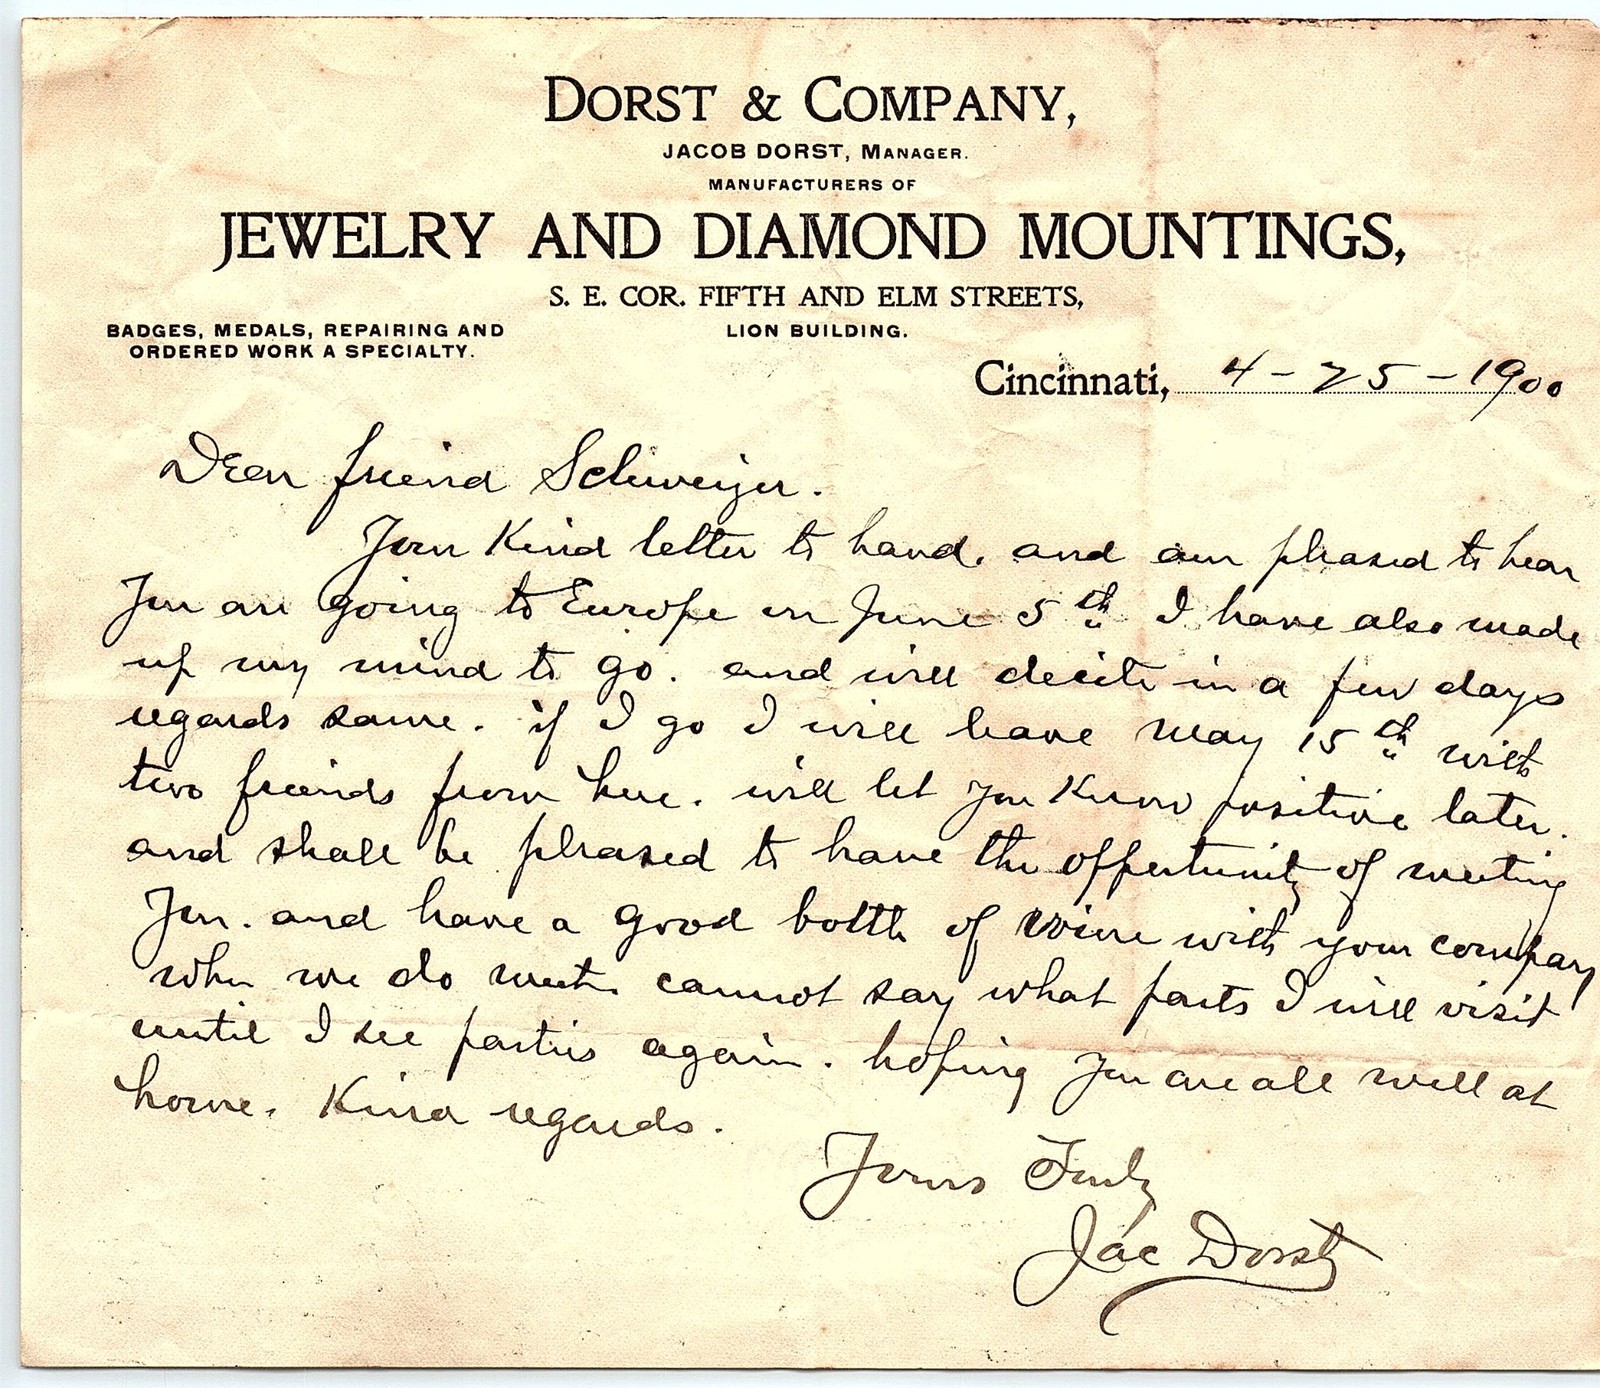 DORST & COMPANY,
JACOB DORST, MANAGER.
MANUFACTURERS OF
JEWELRY AND DIAMOND MOUNTINGS,
S. E. COR. FIFTH AND ELM STREETS,
LION BUILDING.
BADGES, MEDALS, REPAIRING AND
ORDERED WORK A SPECIALTY.
Cincinnati, 4-25-1900
Dear friend
Your Kind letter to hand. and am pleased to hear
You are going to Europe on June 5th I have also made
up my mind to go. and will decite in a few days
regards same. if I go I will leave May 15th with
two friends from here. will let you Know positive later.
and shall be pleased to have the oppertunity of meeting
You. and have a good bottle of wine with your company
when we do meet. cannot say what parts I will visit
until I see parties again. hoping you are all well at
home. Kind regards.
Yours Truly
Jac Dorst